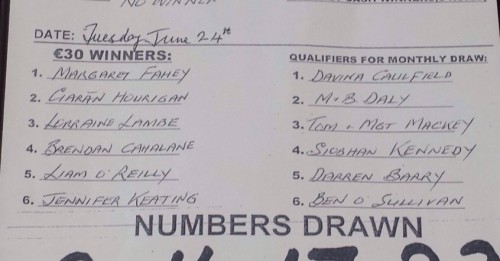 NO WINNER
DATE: Tuesday June 24th
€30 WINNERS:
1. MARGARET FAHEY
2. CIARÁN HOURIGAN
3. LORRAINE LAMBE
4. BRENDAN CAHALANE
5. LIAM O'REILLY
6. JENNIFER KEATING
QUALIFIERS FOR MONTHLY DRAW:
1. DAVINA CAULFIELD
2. M+B DALY
3. TOM + MGT MACKEY
4. SIOBHAN KENNEDY
5. DARREN BARRY
6. BEN O'SULLIVAN
NUMBERS DRAWN